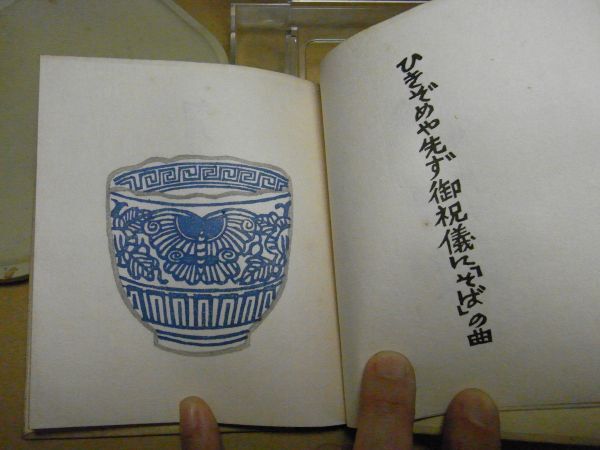 ひきぞめや先ず御祝儀に「そば」の曲